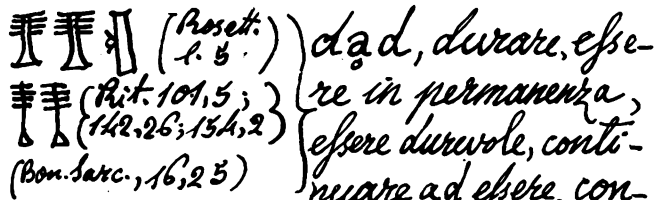 𓊽𓊽𓏛 (Rosett.
l. 5.)
𓊽𓊽 (Rit. 101,5;
(142,26; 154,2)
(Bon. Sarc., 16,25)
dạd, durare, esse-
re in permanenza,
essere durevole, conti-
nuare ad essere, con-